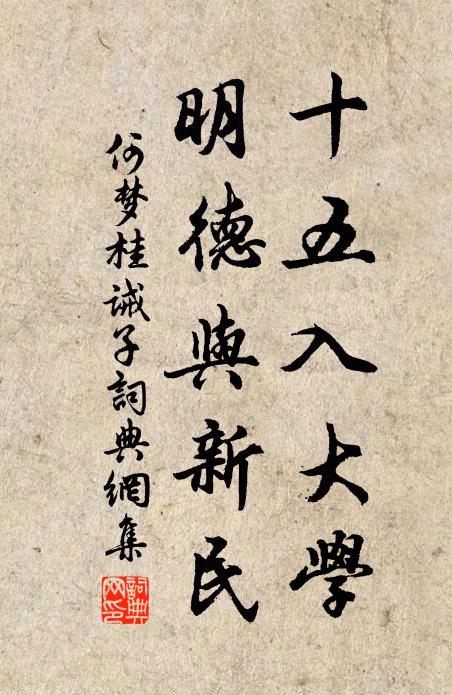 十五入大學
明德與新民
何梦桂誡子詞典網集
詞典
网印